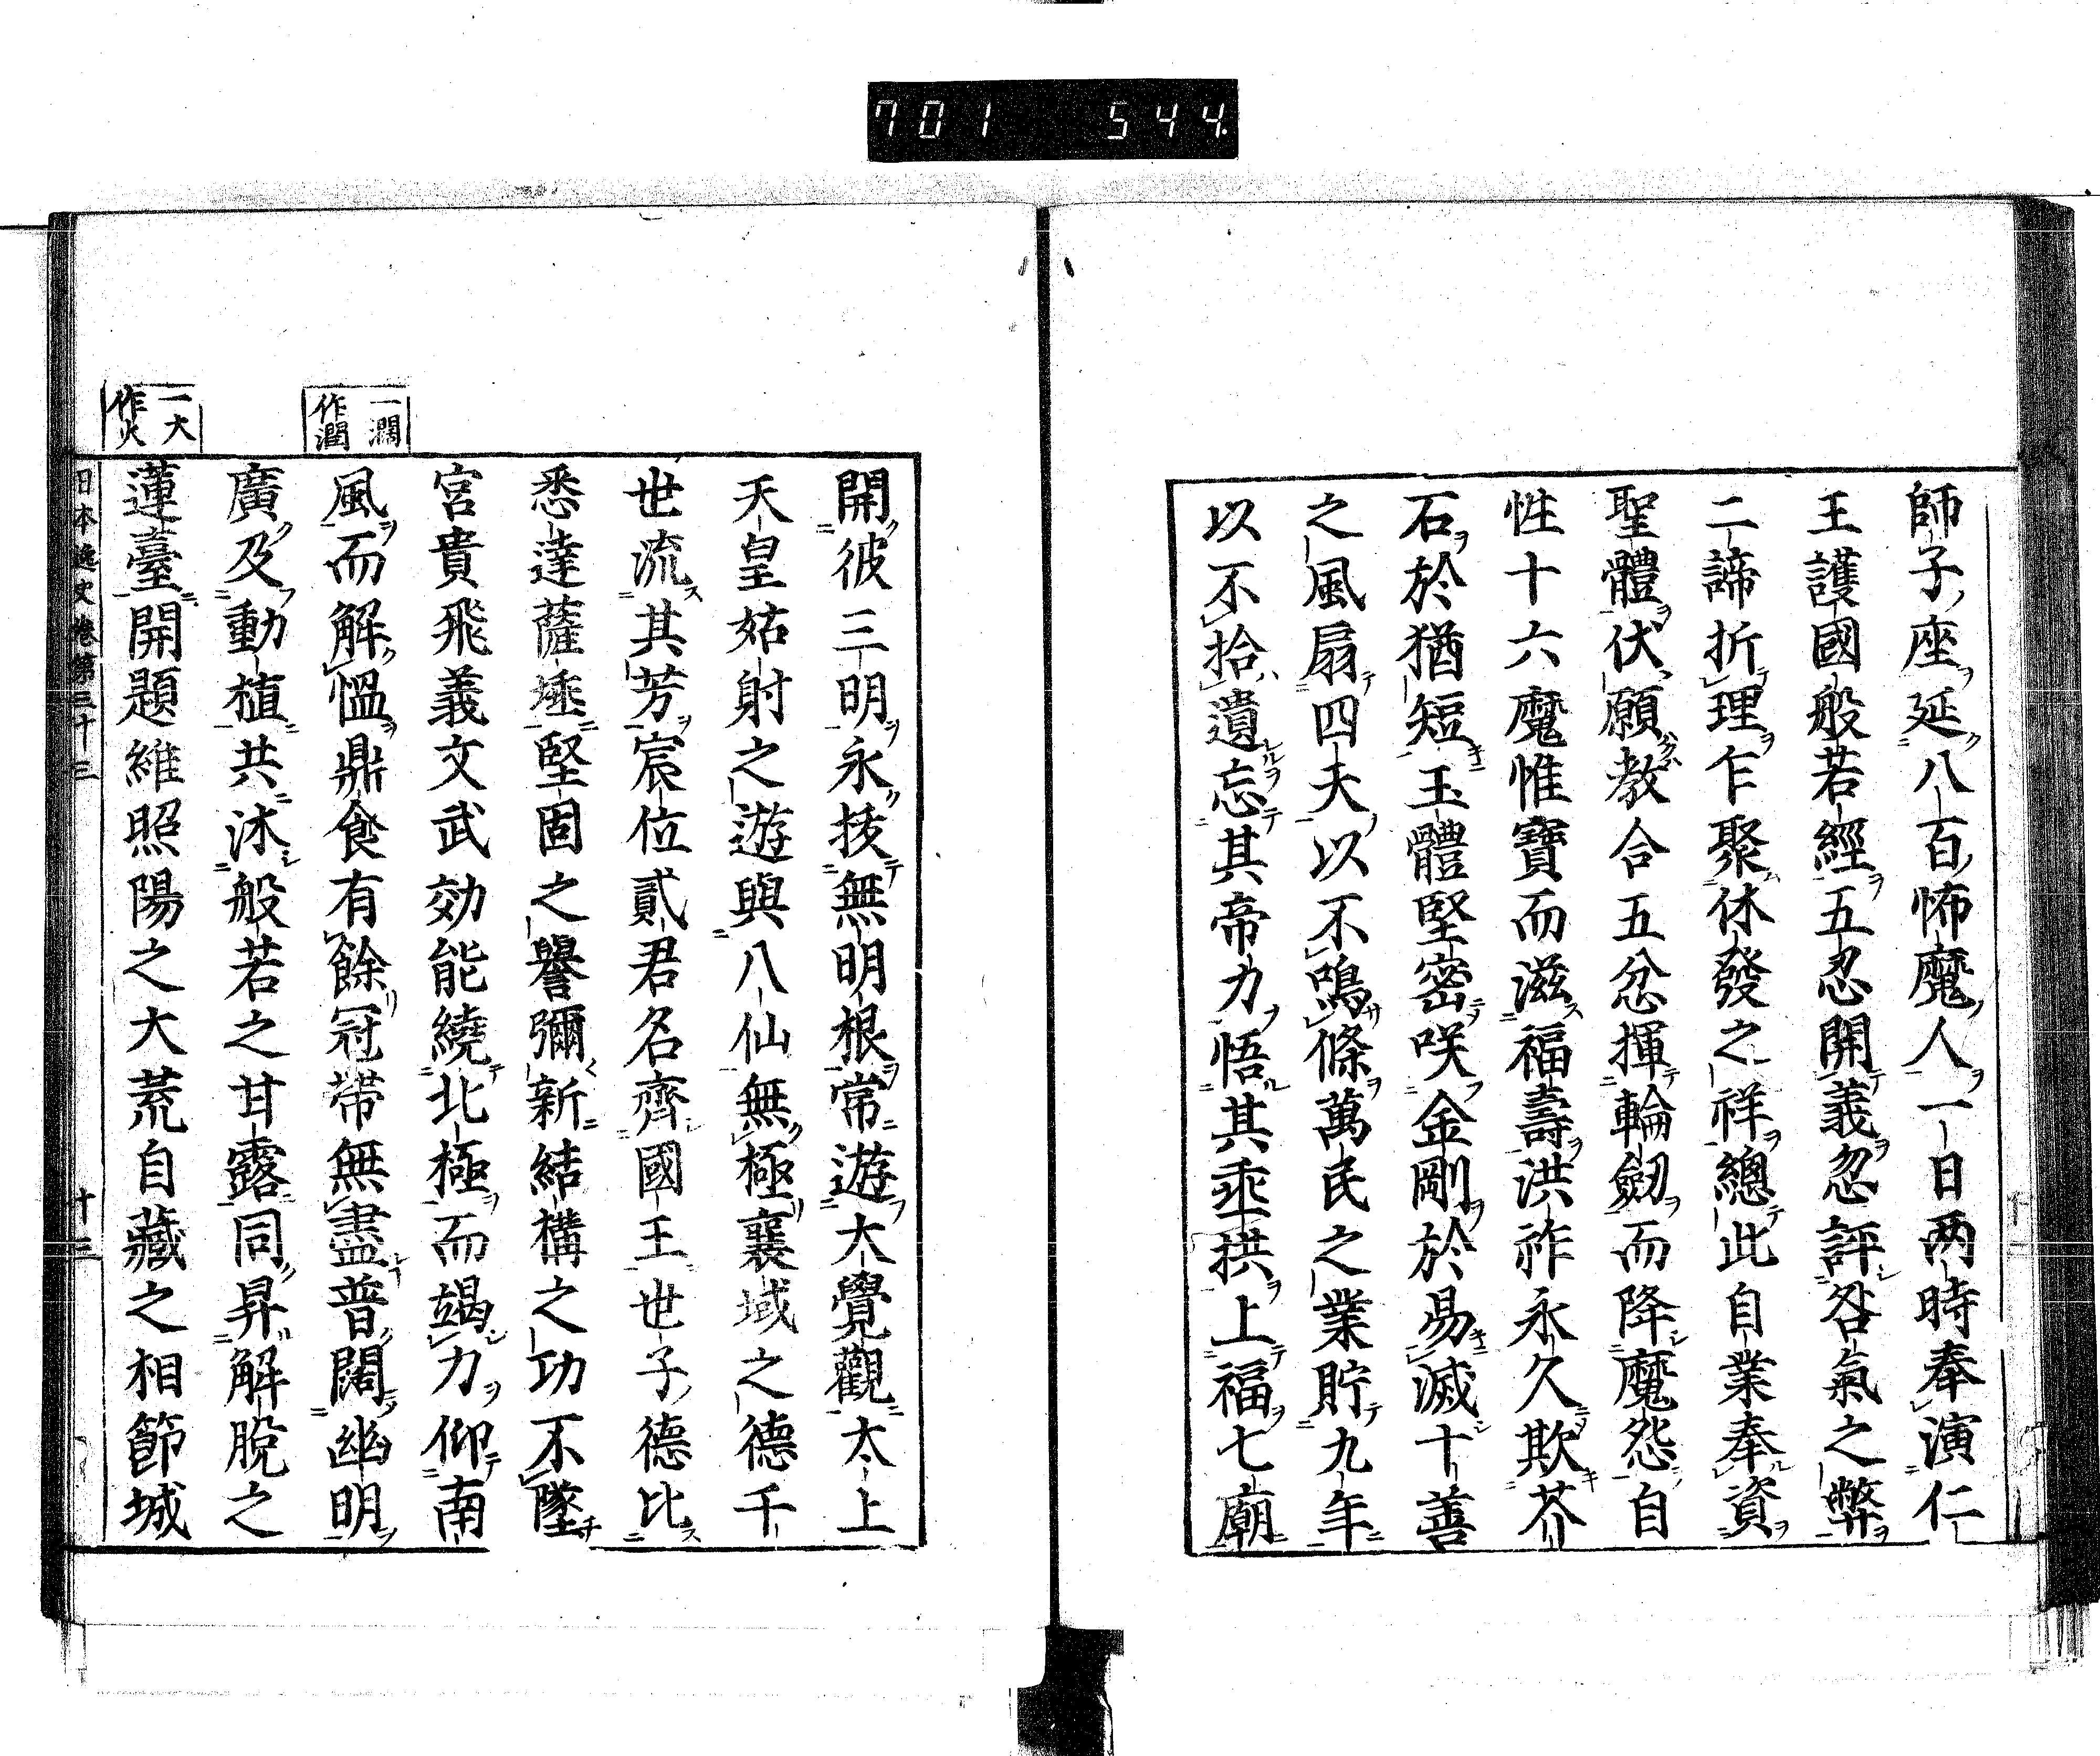 701 544.
師子座延八百怖魔人一日两時奉演仁
王護國般若經五忍開義忍評咎氣之弊
二諦折理乍聚休發之祥總此自業奉資
聖體伏願教合五忿揮輪劔而降魔怨自
性十六魔惟寶而滋福壽洪祚永久欺芥
石於猶短玉體堅密咲金剛於易滅十善
之風扇四天以不鳴條萬民之業貯九年
以不拾遺忘其帝力悟其垂拱上福七廟
開彼三明永拔無明根常遊大覺觀太上
天皇姑射之遊與八仙無極襄域之德千
世流其芳宸位貳君名齊國王世子德比
悉達薩埵堅固之譽彌新結構之功不墜
宮貴飛義文武効能繞北極而竭力仰南
風而解慍鼎食有餘冠帶無盡普闊幽明
廣及動植共沐般若之甘露同昇解脫之
蓮臺開題維照陽之大荒自藏之相節城
一濶
作潤
一大
作火
日本逸史卷第三十三 十二